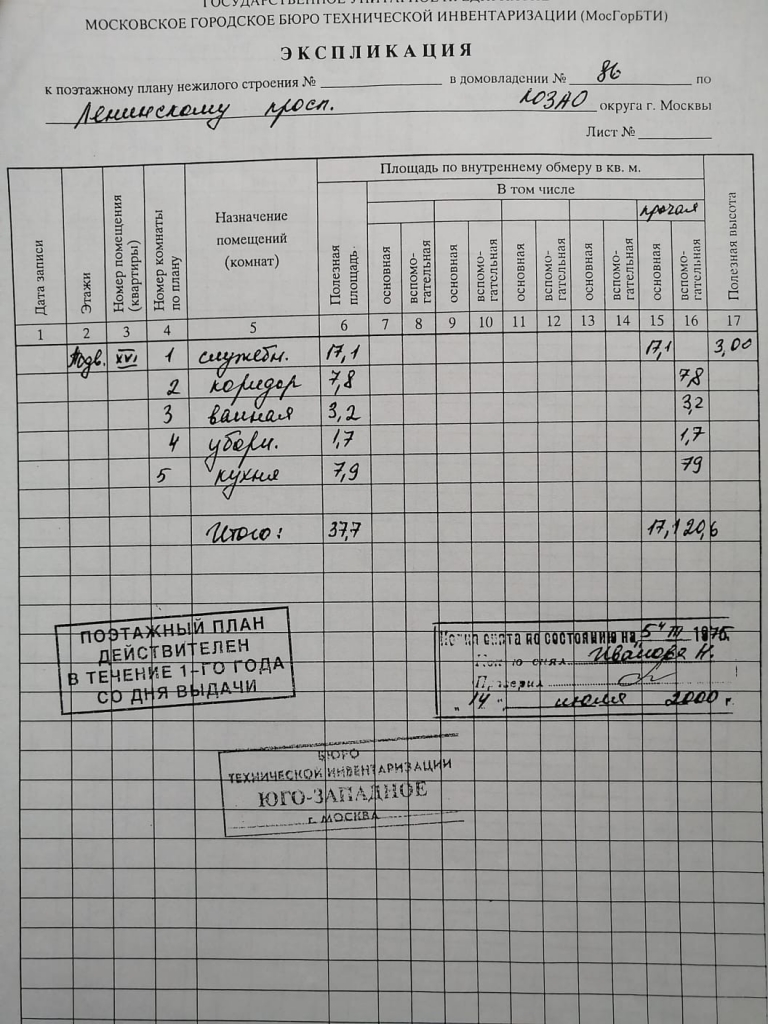 МОСКОВСКОЕ ГОРОДСКОЕ БЮРО ТЕХНИЧЕСКОЙ ИНВЕНТАРИЗАЦИИ (МосГорБТИ)
ЭКСПЛИКАЦИЯ
к поэтажному плану нежилого строения № в домовладении № 86 по
Ленинскому просп. ЮЗАО округа г. Москвы
Лист №
Дата записи
Этажи
Номер помещения (квартиры)
Номер комнаты по плану
Назначение помещений (комнат)
Площадь по внутреннему обмеру в кв. м.
Полезная площадь
В том числе
прочая
основная вспомо-гательная основная вспомо-гательная основная вспомо-гательная основная вспомо-гательная основная вспомо-гательная
Полезная высота
1 2 3 4 5 6 7 8 9 10 11 12 13 14 15 16 17
Подв. XVI 1 служебн. 17,1 17,1 3,00
2 коридор 7,8 7,8
3 ванная 3,2 3,2
4 уборн. 1,7 1,7
5 кухня 7,9 79
Итого: 37,7 17,1 20,6
ПОЭТАЖНЫЙ ПЛАН
ДЕЙСТВИТЕЛЕН
В ТЕЧЕНИЕ 1-ГО ГОДА
СО ДНЯ ВЫДАЧИ
Копия снята по состоянию на
Копию снял Иванова Н.
Проверил
"14" июля 2000 г.
БЮРО
ТЕХНИЧЕСКОЙ ИНВЕНТАРИЗАЦИИ
ЮГО-ЗАПАДНОЕ
г. МОСКВА